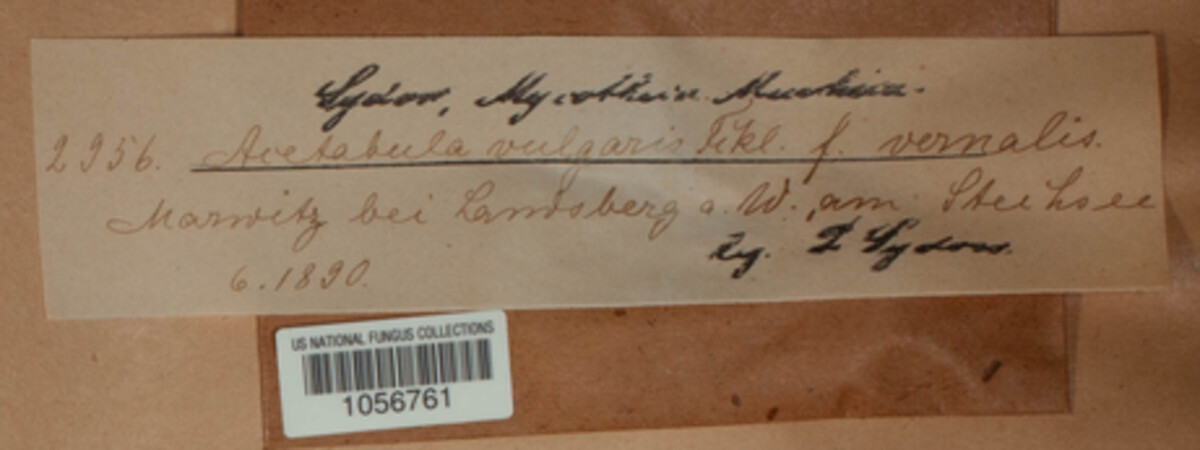 Sydow, Mycotheca Marchica.
2956. Acetabula vulgaris Fckl. f. vernalis.
Marwitz bei Landsberg a. W., am Stechsee
leg. P Sydow.
6.1890.
US NATIONAL FUNGUS COLLECTIONS
1056761